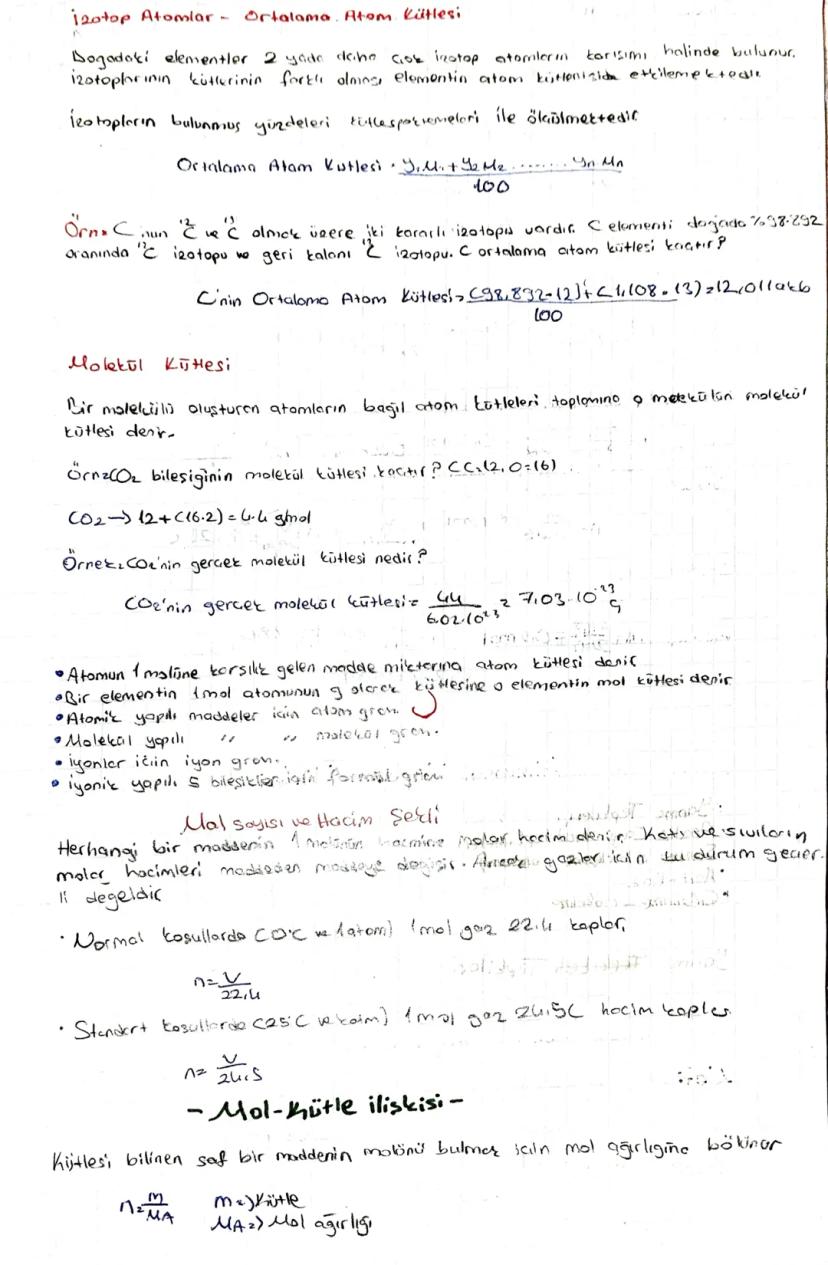 İzotop Atomlar - Ortalama Atom Kütlesi
Dogadaki elementler 2 yada daha çok izotop atomların karısımı halinde bulunur.
izotoplarının kütlerinin farklı olması elementin atom kütlesinide etkilemektedir
İzotopların bulunmus yüzdeleri kütlespektremeleri ile ölçülmektedir
Ortalama Atom Kutlesi = y₁M₁ + y₂M₂ ........ yₙ Mₙ
100
Örn: C nun ¹²C ve ¹³C olmak üzere iki kararlı izotopu vardır. C elementi dogada %98.892
oranında ¹²C izotopu ve geri kalanı ¹³C izotopu. C ortalama atom kütlesi kaçtır?
C'nin Ortalama Atom Kütlesi = (98,892.12) + (1,108.13) = 12,011akb
100
Molekül Kütlesi
Bir molekülü oluşturan atomların bağıl atom kütleleri toplamına o molekülün molekül
kütlesi denir.
Örn: CO₂ bilesiginin molekül kütlesi kaçtır? (C:12, O:16)
CO₂ → 12 + (16.2) = 44 g/mol
Örnek: CO₂'nin gerçek molekül kütlesi nedir?
CO₂'nin gerçek molekül kütlesi = 44 = 7,03.10⁻²³ g
6.02.10²³
• Atomun 1 molüne karsılık gelen madde miktarına atom kütlesi denir
• Bir elementin 1 mol atomunun g olarak kütlesine o elementin mol kütlesi denir
• Atomik yapılı maddeler için atom gram
• Molekül yapılı " " molekül gram.
• İyonlar için iyon gram.
• İyonik yapılı bilesikler için formül gram
Mol sayısı ve Hacim Şekli
Herhangi bir maddenin 1 molünün hacmine molar hacim denir. Katı ve sıvıların
molar hacimleri maddeden maddeye degisir. Ancak gazlar için bu durum geçer-
li degeldir
· Normal kosullarda (0°C ve 1atom) 1mol gaz 22.4 kaplar,
n = V
22,4
· Standart kosullarda (25°C ve 1atm) 1mol gaz 24.5L hacim kaplar
n = V
24.5
- Mol-Kütle iliskisi -
Kütlesi bilinen saf bir maddenin molünü bulmak için mol ağırlıgına bölünür
n = m m => Kütle
MA MA => Mol ağırlığı